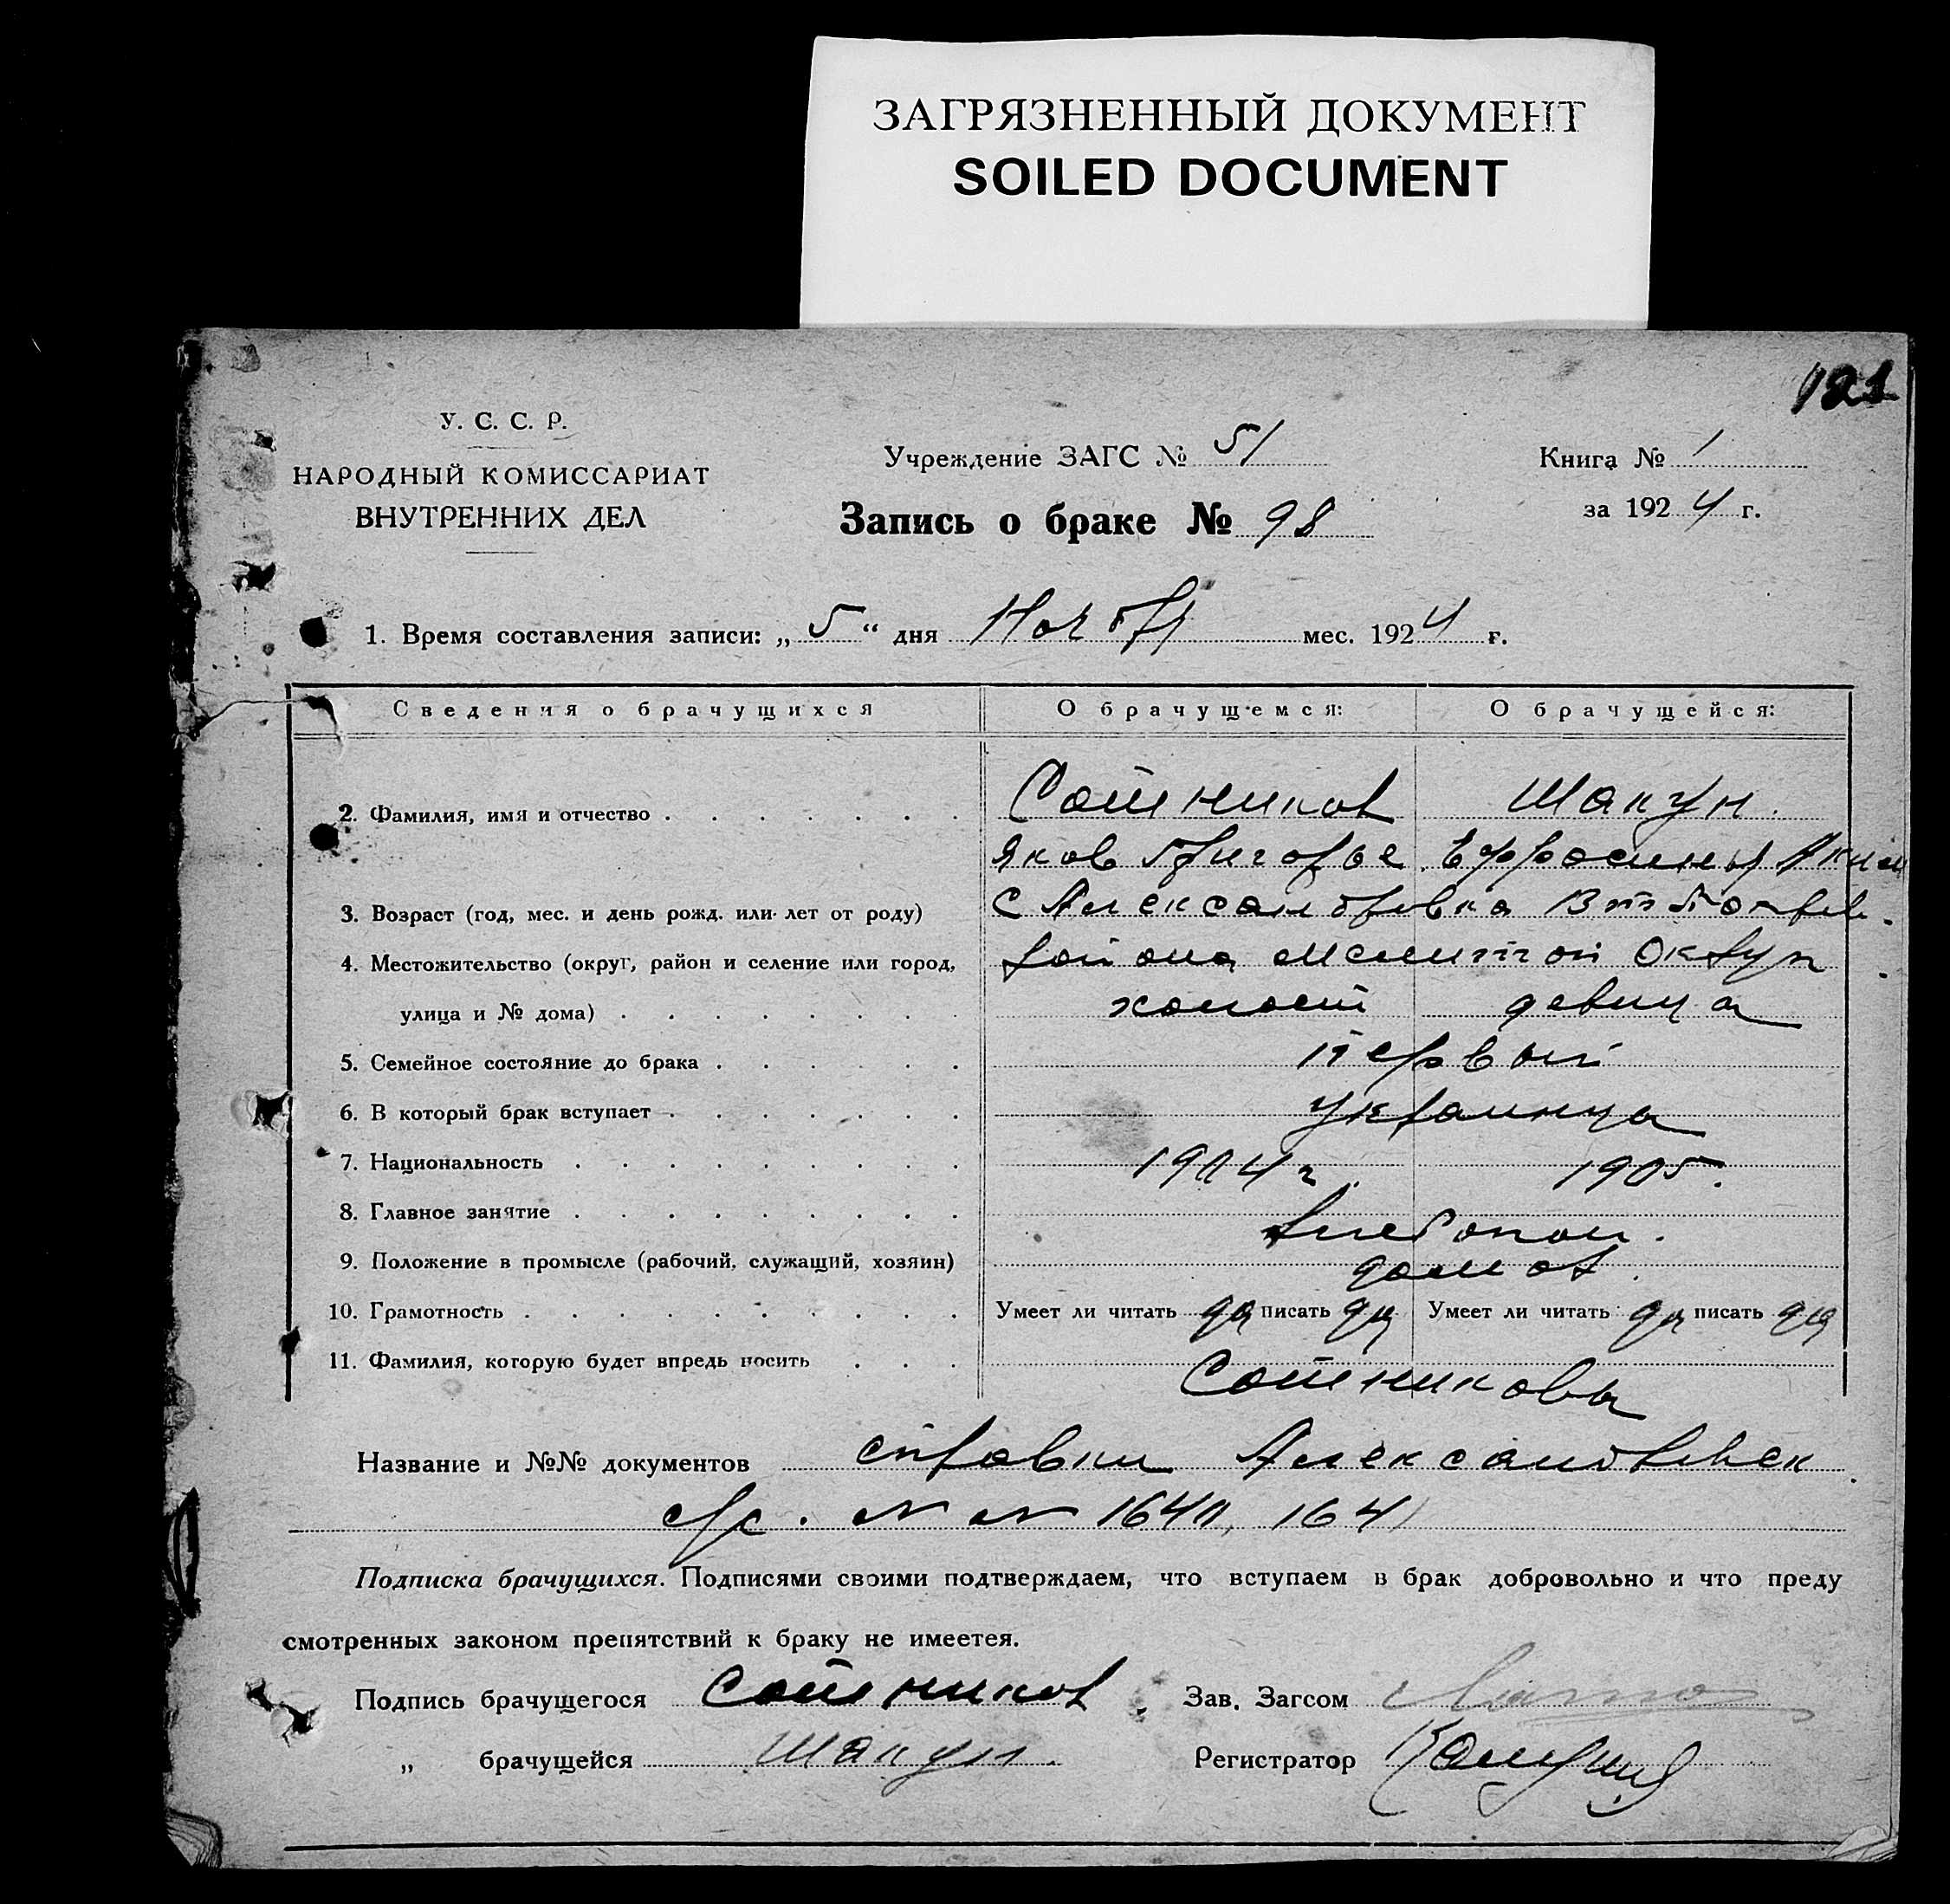 ЗАГРЯЗНЕННЫЙ ДОКУМЕНТ
SOILED DOCUMENT
121
У. С. С. Р.
НАРОДНЫЙ КОМИССАРИАТ
ВНУТРЕННИХ ДЕЛ
Учреждение ЗАГС № 51
Книга № 1
Запись о браке № 98
за 1924 г.
1. Время составления записи: „ 5 “ дня Ноября мес. 1924 г.
Сведения о брачущихся О брачущемся: О брачущейся:
2. Фамилия, имя и отчество Сотников Шакун.
Яков Григорье Ефросиныя Аким
3. Возраст (год, мес. и день рожд. или лет от роду) с Александровка
4. Местожительство (округ, район и селение или город, района Мелитой Округ
улица и № дома) холост девица
5. Семейное состояние до брака первый
6. В который брак вступает Украинца
7. Национальность 1904 г. 1905.
8. Главное занятие хлебопаш.
9. Положение в промысле (рабочий, служащий, хозяин)
10. Грамотность Умеет ли читать да писать да Умеет ли читать да писать да
11. Фамилия, которую будет впредь носить
Сотникова
Название и №№ документов справки Александровск
с/с. № № 1640, 1641
Подписка брачущихся. Подписями своими подтверждаем, что вступаем в брак добровольно и что преду
смотренных законом препятствий к браку не имеется.
Подпись брачущегося Сотников Зав. Загсом
„ брачущейся Шакун. Регистратор